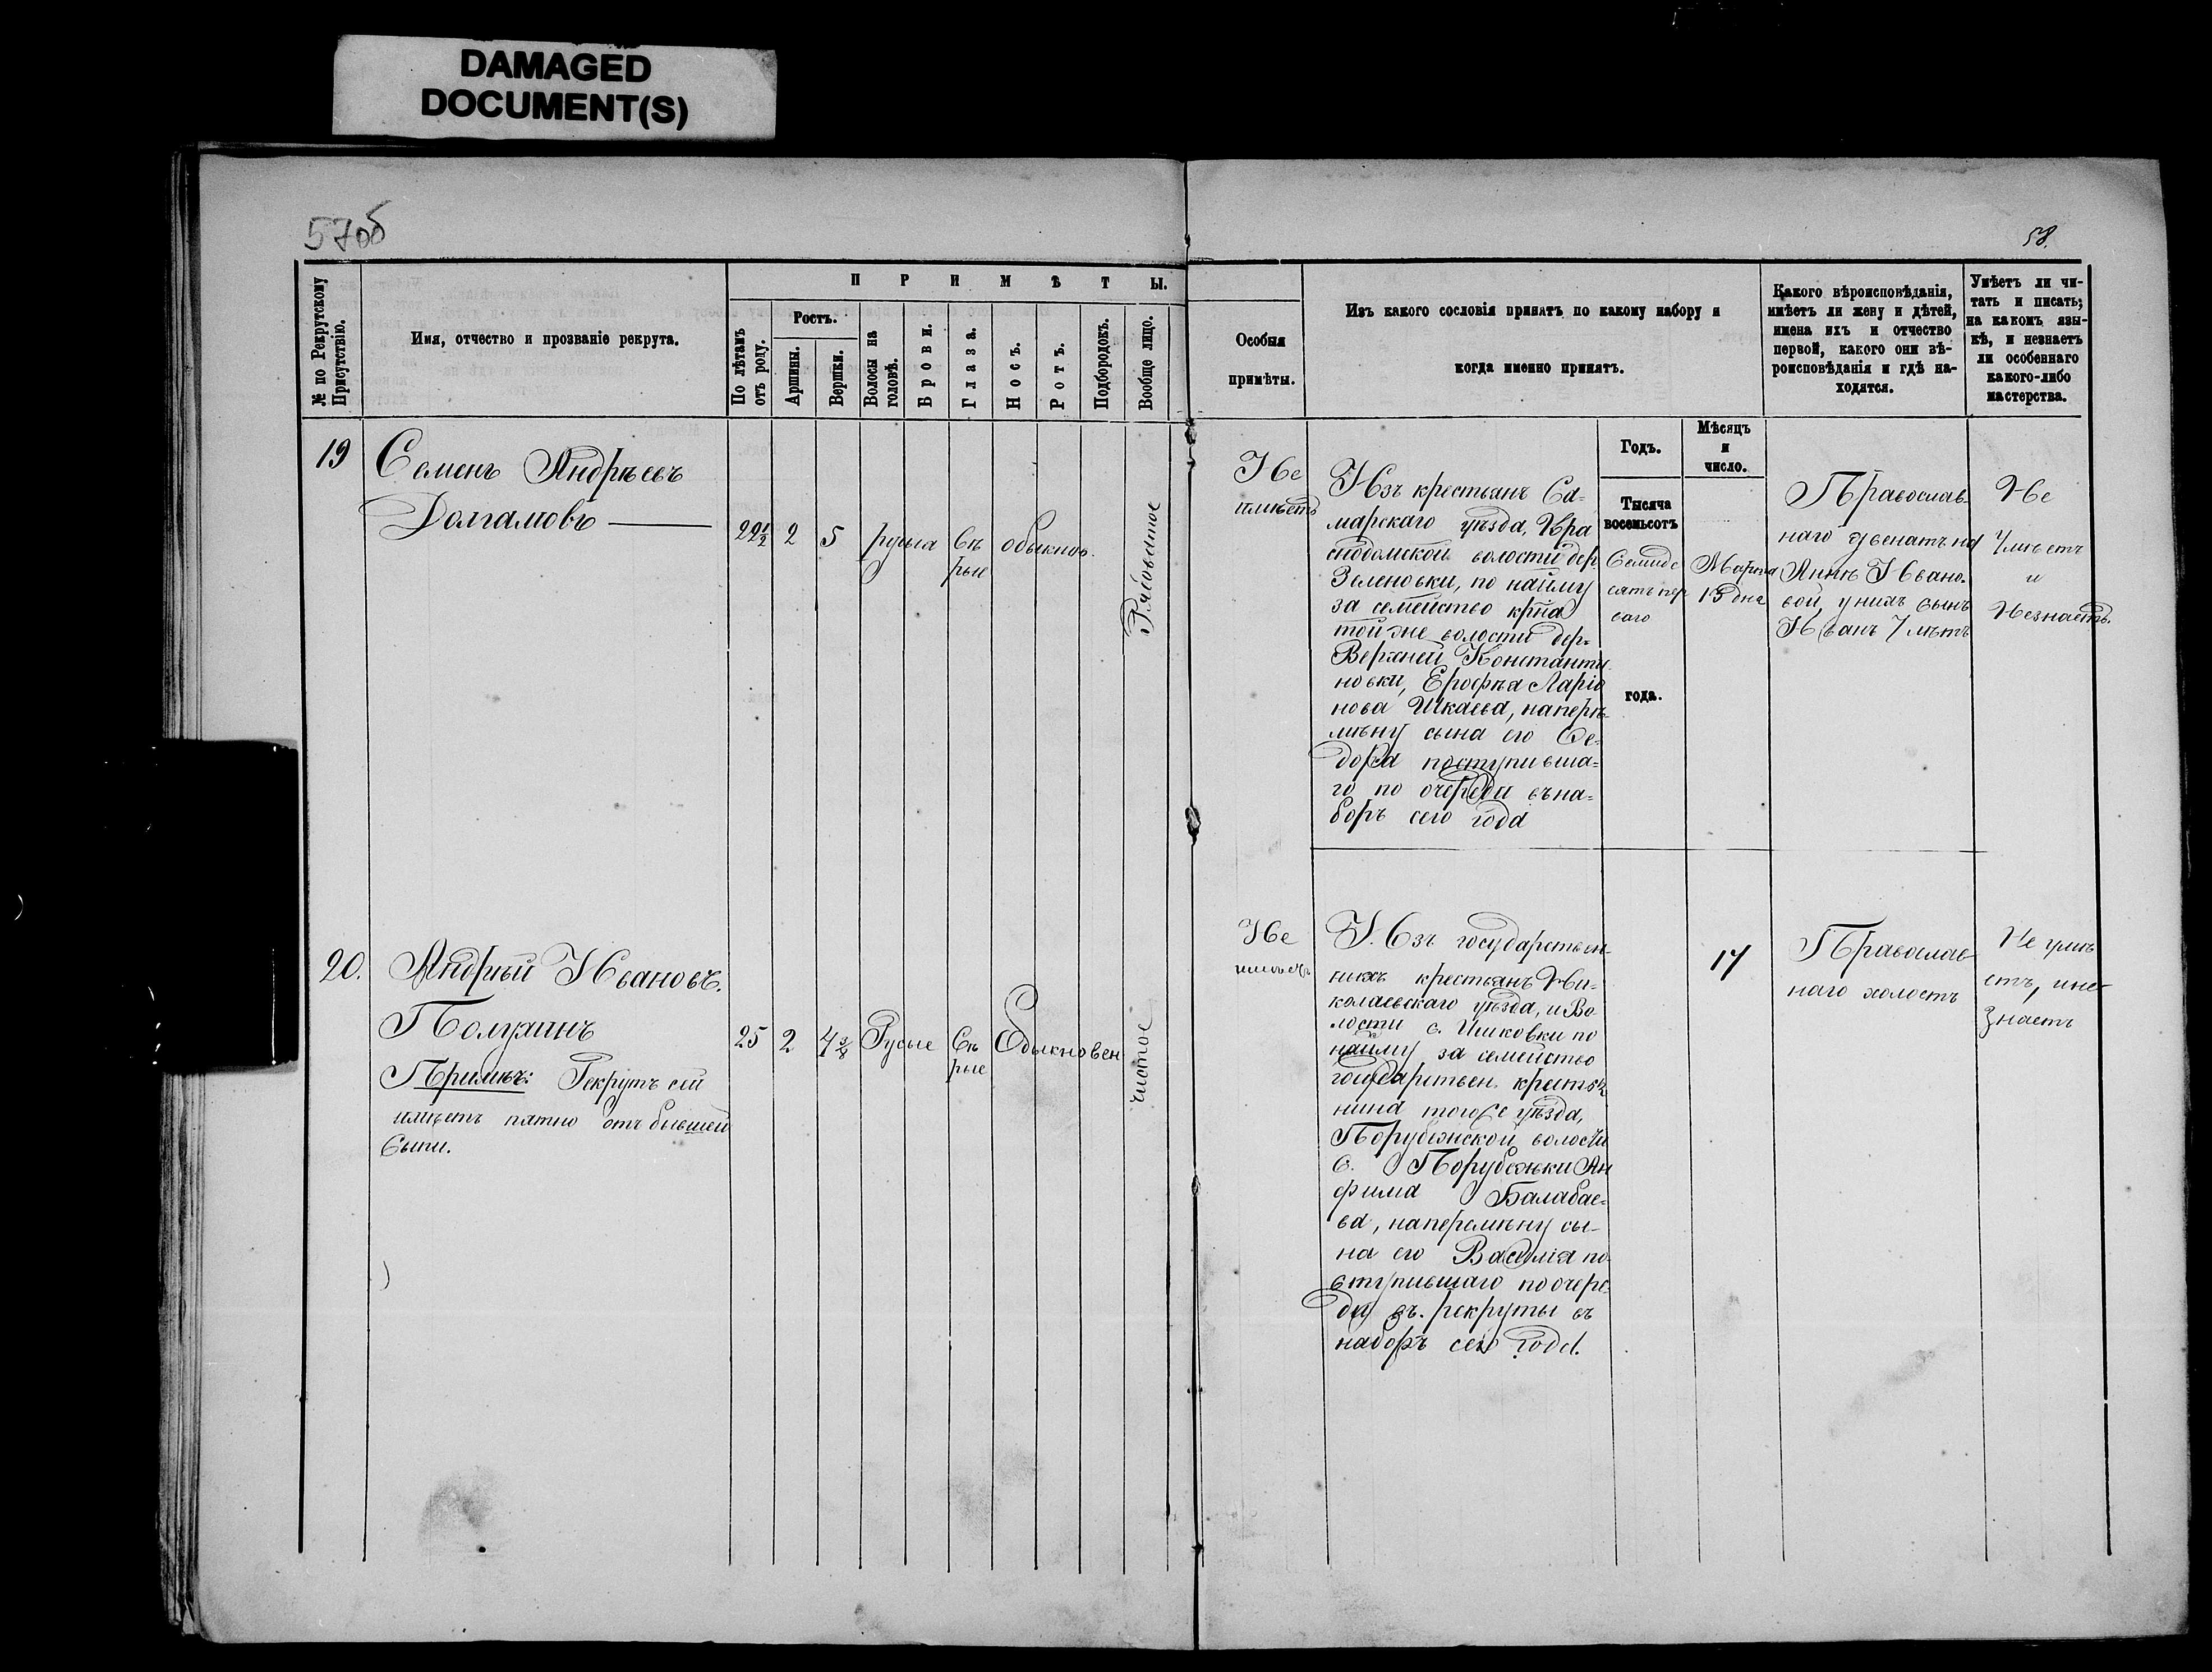 DAMAGED
DOCUMENT(S)
57об
58.
№ по Рекрутскому
Присутствію.
Имя, отчество и прозваніе рекрута.
ПРИМѢТЫ.
По лѣтамъ
отъ роду.
Ростъ.
Аршины.
Вершки.
Волосы на
головѣ.
Брови.
Глаза.
Носъ.
Ротъ.
Подбородокъ.
Вообще лицо.
Особыя
примѣты.
Изъ какого сословія принятъ по какому набору и
когда именно принятъ.
Какого вѣроисповѣданія,
имѣетъ ли жену и дѣтей,
имена ихъ и отчество
первой, какого они вѣ-
роисповѣданія и гдѣ на-
ходятся.
Умѣетъ ли чи-
тать и писать;
на какомъ язы-
кѣ, и незнаетъ
ли особеннаго
какого-либо
мастерства.
Годъ.
Мѣсяцъ
и
число.
Тысяча
восемьсотъ
Семиде
сятъ пер
ваго
года.
19
Семенъ Андрѣевъ
Долгамовъ
22½ 2 5 русыа Сѣ
рые
обыкнов.
Рябоватое
Не
имѣетъ
Изъ крестьянъ Са-
марскаго уѣзда, Кра
снодомской волости дер
Зеленовки, по найму
за семейство кр̃на
той же волости дер.
Верхней Константи
новки, Ерофѣа Ларіо
нова Шкаева, наперѣ-
мѣну сына его Фе-
дора поступивша-
го по очереди въ на-
боръ сего года
Марта
15 дна
Православ-
наго женатъ на
Аннѣ Ивано-
вой, у нихъ сынъ
Иванъ 7 лѣтъ
Не
умѣетъ
и
Незнаетъ.
20.
Андрѣй Ивановъ.
Полухинъ
Примѣч: Рекрутъ сей
имѣетъ пятно отъ бывшей
Сыпи.
25 2 4⅜ Русые Сѣ
рые
Обыкновен
чистое
Не
имѣетъ
Изъ государствен-
ныхъ крестьянъ Ни-
колаевскаго уѣзда, и Во
лости с. Ишковки по
найму за семейство
государствен. крестья
нина того же уѣзда,
Порубѣжской волости
с. Порубежки Ан
фима Балабае-
ва, наперемѣну сы-
на его Василія по
ступившаго по очере
ди въ рекруты въ
наборъ сего года.
17
Православ
наго холостъ
Не умѣ
етъ, и не
знаетъ